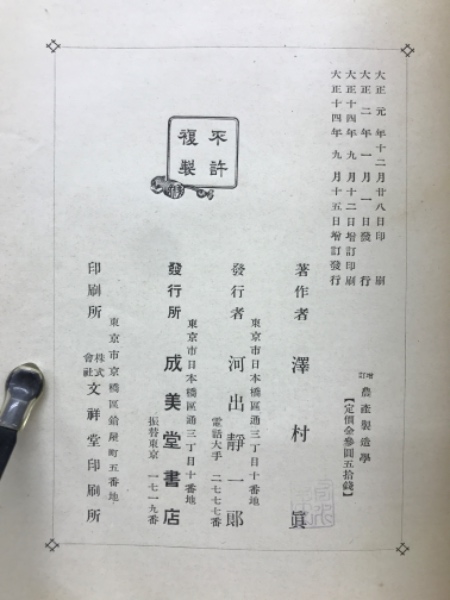 大正元年十二月廿八日印刷
大正二年一月一日發行
大正十四年九月十二日增訂印刷
大正十四年九月十五日增訂發行
增訂農產製造學
【定價金參圓五拾錢】
不許
複製
著作者 澤村眞
東京市日本橋區通三丁目十番地
發行者 河出靜一郞
電話大手 二七七七番
東京市日本橋區通三丁目十番地
發行所 成美堂書店
振替東京 一七一九番
東京市京橋區鎗屋町五番地
印刷所 株式會社文祥堂印刷所